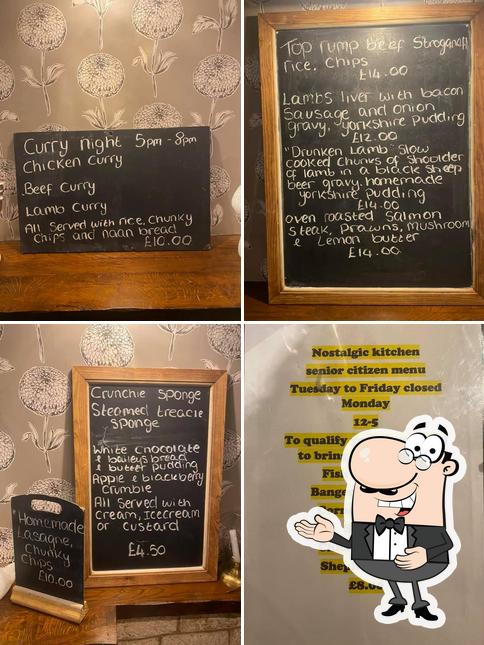 Curry night 5pm - 8pm
Chicken Curry
Beef Curry
Lamb Curry
All Served with rice, Chunky
Chips and naan bread
£10.00
Top rump beef Stroganoff
rice. Chips
£14.00
Lambs liver with bacon
Sausage and onion
gravy, yorkshire pudding
£12.00
"Drunken Lamb" Slow
cooked chunks of Shoulder
of lamb in a black sheep
beer gravy, homemade
yorkshire pudding
£14.00
oven roasted Salmon
Steak, Prawns, Mushroom
& Lemon butter
£14.00
Crunchie Sponge
Steamed treacle
sponge
White Chocolate
& baileys bread
& butter pudding
Apple & blackberry
crumble
All Served with
cream, icecream
or custard
£4.50
"Homemade
Lasagne,
Chunky
Chips
£10.00
Nostalgic kitchen
senior citizen menu
Tuesday to Friday closed
Monday
12-5
To qualify
to brin
Fis
Bange
Shep
£8.0